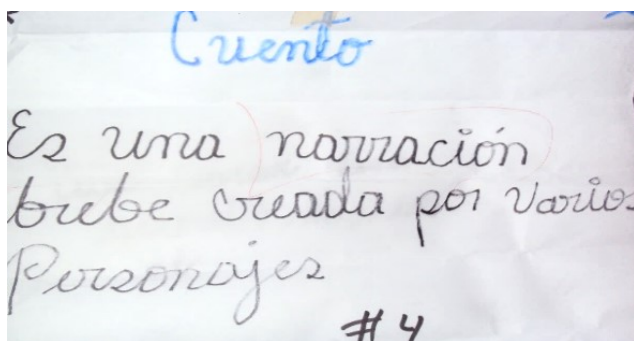 Cuento
Es una narración
brebe creada por varios
Personajes
#4